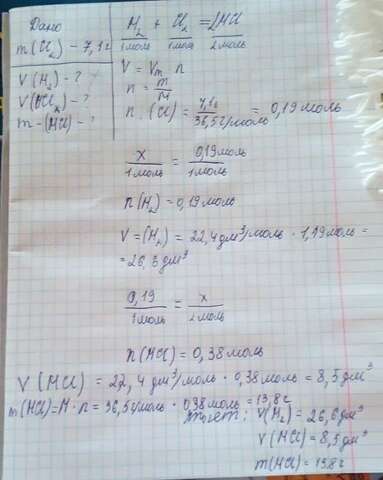 Дано
m(Cl₂) - 7,1г
V(H₂) - ?
V(HCl) - ?
m - (HCl) - ?
H₂ + Cl₂ = 2HCl
1моль 1моль 2моль
V = Vm · n
n = m/M
n (Cl) = 7,1г / 36,5г/моль = 0,19 моль
x / 1 моль = 0,19 моль / 1 моль
n(H₂) = 0,19 моль
V = (H₂) = 22,4 дм³/моль · 1,19 моль =
= 26,6 дм³
0,19 / 1 моль = x / 2 моль
n(HCl) = 0,38 моль
V(HCl) = 22,4 дм³/моль · 0,38 моль = 8,5 дм³
m(HCl) = M · n = 36,5г/моль · 0,38 моль = 13,8г
Ответ: V(H₂) = 26,6 дм³
V(HCl) = 8,5 дм³
m(HCl) = 13,8г